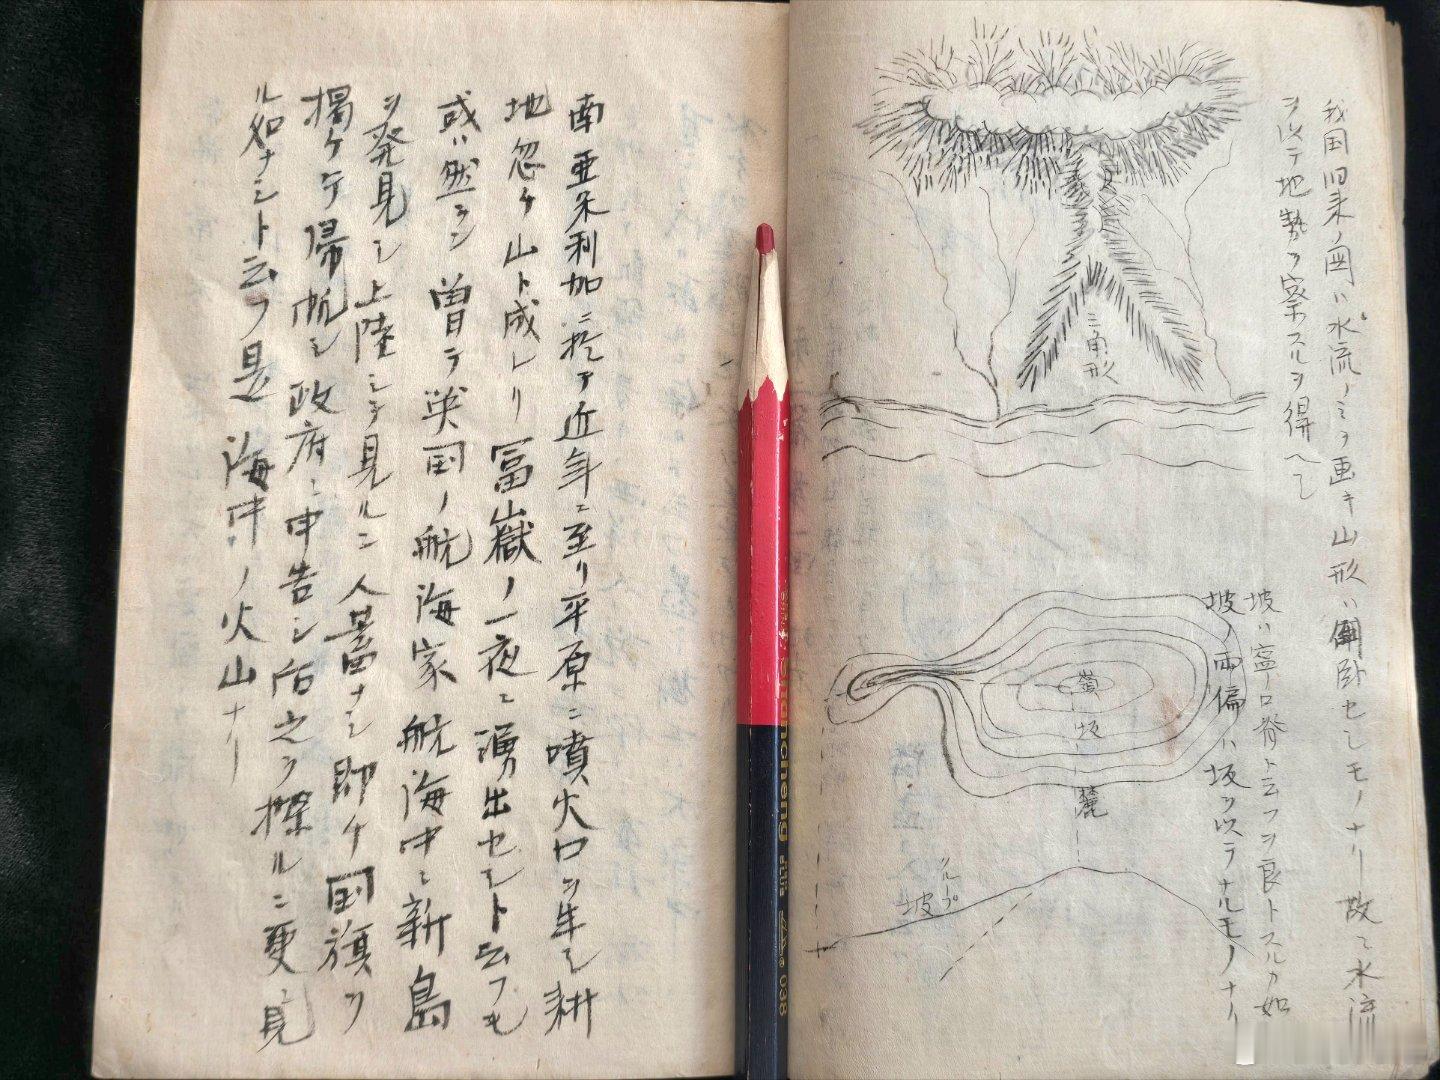 我国旧来ノ図ハ水流ノミヲ画キ山形ハ倒臥セシモノナリ故ニ水流
ヲ以テ地勢ヲ察スルヲ得ヘシ
三角形
坡ハ寧ロ脊ト云フヲ良トスルカ如
坡ノ両偏ハ坂ヲ以テナルモノナリ
嶺
坂
麓
坡
南亜米利加ニ於テ近年ニ至リ平原ニ噴火口ヲ生シ耕
地忽チ山ト成レリ冨嶽ノ一夜ニ湧出セシト云フモ
或ハ然ラン曽テ英国ノ航海家航海中ニ新島
ヲ発見シ上陸シテ見ルニ人畜ナシ即ケ国旗ヲ
掲ケテ帰帆シ政府ニ申告シ后之ヲ探ルニ更ニ見
ル処ナシト云フ是海中ノ火山ナリ
Chancheng
038